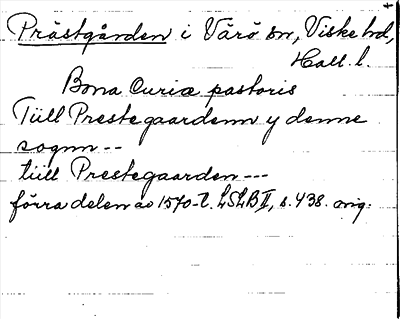 Prästgården i Värö sn, Viske hd,
Hall. l.
Bona Curiæ pastoris
Tiill Prestegaardenn y denne
sognn --
tiill Prestegaarden ---
förra delen av 1570-t. LSLB II, s. 438. orig.